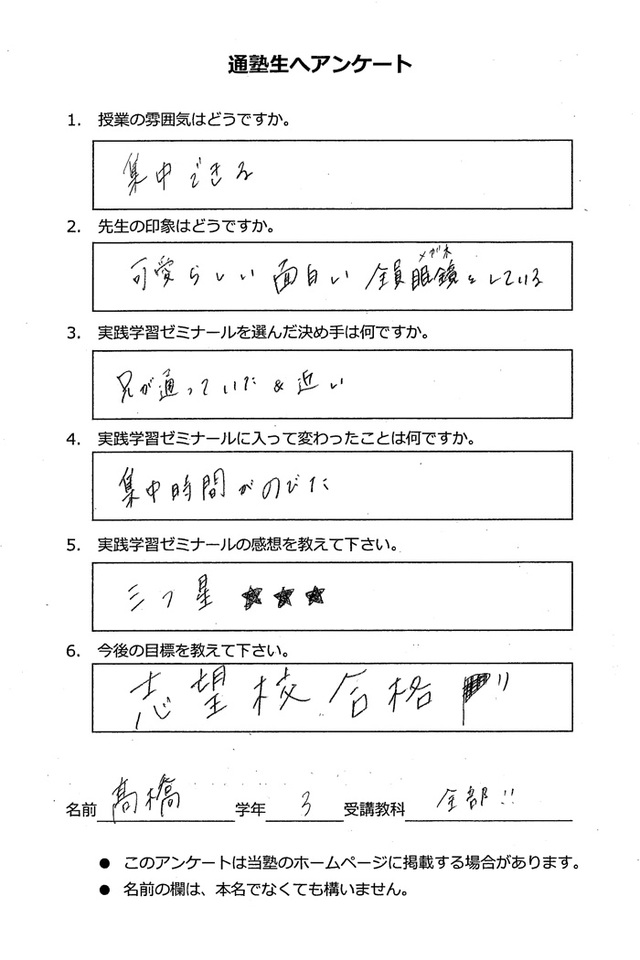 通塾生へアンケート
1. 授業の雰囲気はどうですか。
集中できる
2. 先生の印象はどうですか。
メガネ
可愛らしい 面白い 全員眼鏡をしている
3. 実践学習ゼミナールを選んだ決め手は何ですか。
兄が通っていた & 近い
4. 実践学習ゼミナールに入って変わったことは何ですか。
集中時間がのびた
5. 実践学習ゼミナールの感想を教えて下さい。
三つ星 ★★★
6. 今後の目標を教えて下さい。
志望校合格 !!
名前 髙橋 学年 3 受講教科 全部!!
● このアンケートは当塾のホームページに掲載する場合があります。
● 名前の欄は、本名でなくても構いません。